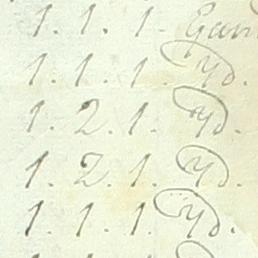 1. 1. 1.
1. 1. 1. Yd.
1. 2. 1. Yd.
1. 2. 1. Yd.
1. 1. 1. Yd.